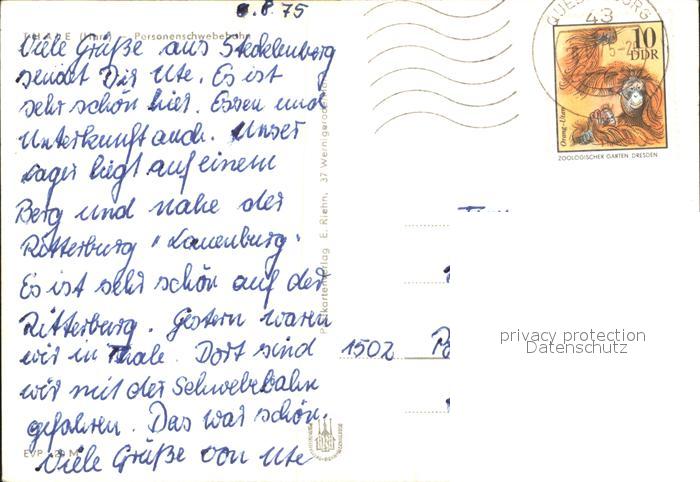 8.75
THALE (Harz) Personenschwebebahn
Viele Grüße aus Stecklenberg
sendet Dir Ute. Es ist
sehr schön hier. Essen und
Unterkunft auch. Unser
Lager liegt auf einem
Berg und nahe der
Ritterburg "Lauenburg".
Es ist sehr schön auf der
Ritterburg. Gestern waren
wir in Thale. Dort sind
wir mit der Schwebebahn
gefahren. Das war schön.
Viele Grüße von Ute
EVP
E. Riehn, 37 Wernigerode
43
10
DDR
Orang-Utan
ZOOLOGISCHER GARTEN DRESDEN
1502
privacy protection
Datenschutz